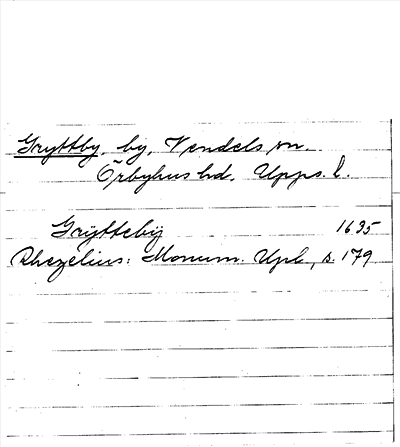 Gryttby, by, Vendels sn.
Örbyhus hd. Upps. l.
Grÿttebÿ 1635
Rhezelius: Monum. Upl., s. 179